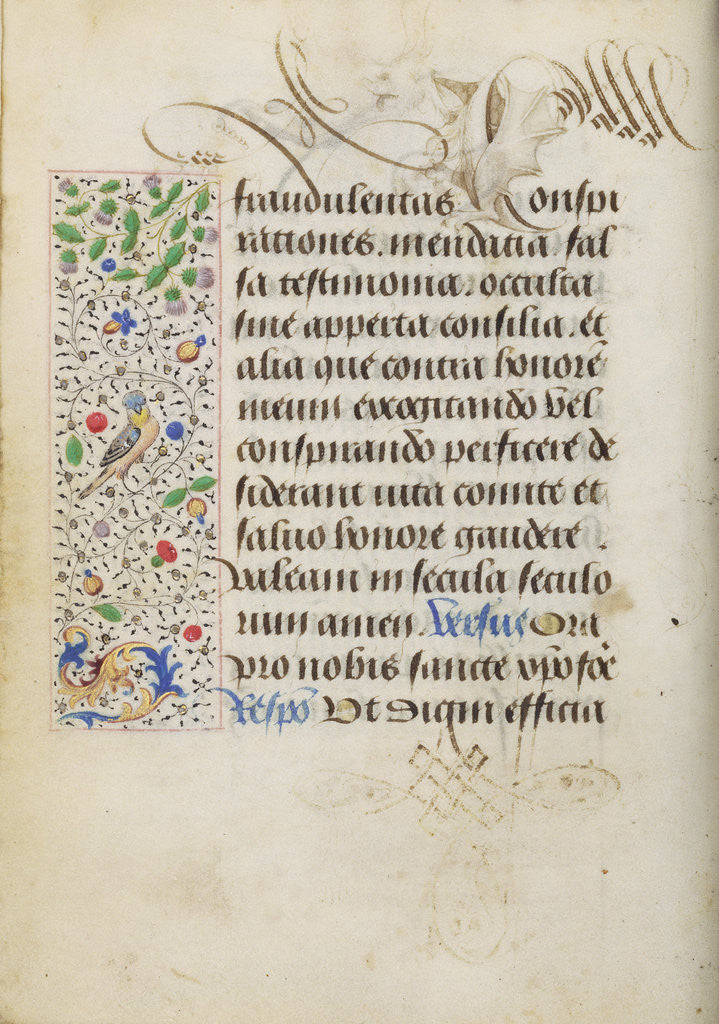 fraudulentas Conspi
rationes. mendatia. fal
sa testimonia. occulta
siue apperta consilia. et
alia que contra honorē
meum excogitando vel
conspirando perficere de
siderant uita comite et
saluo honore gaudere.
Valeam in secula seculo
rum amen. Versus Ora
pro nobis sancte xp̄ofōe
Respō Vt digni efficia